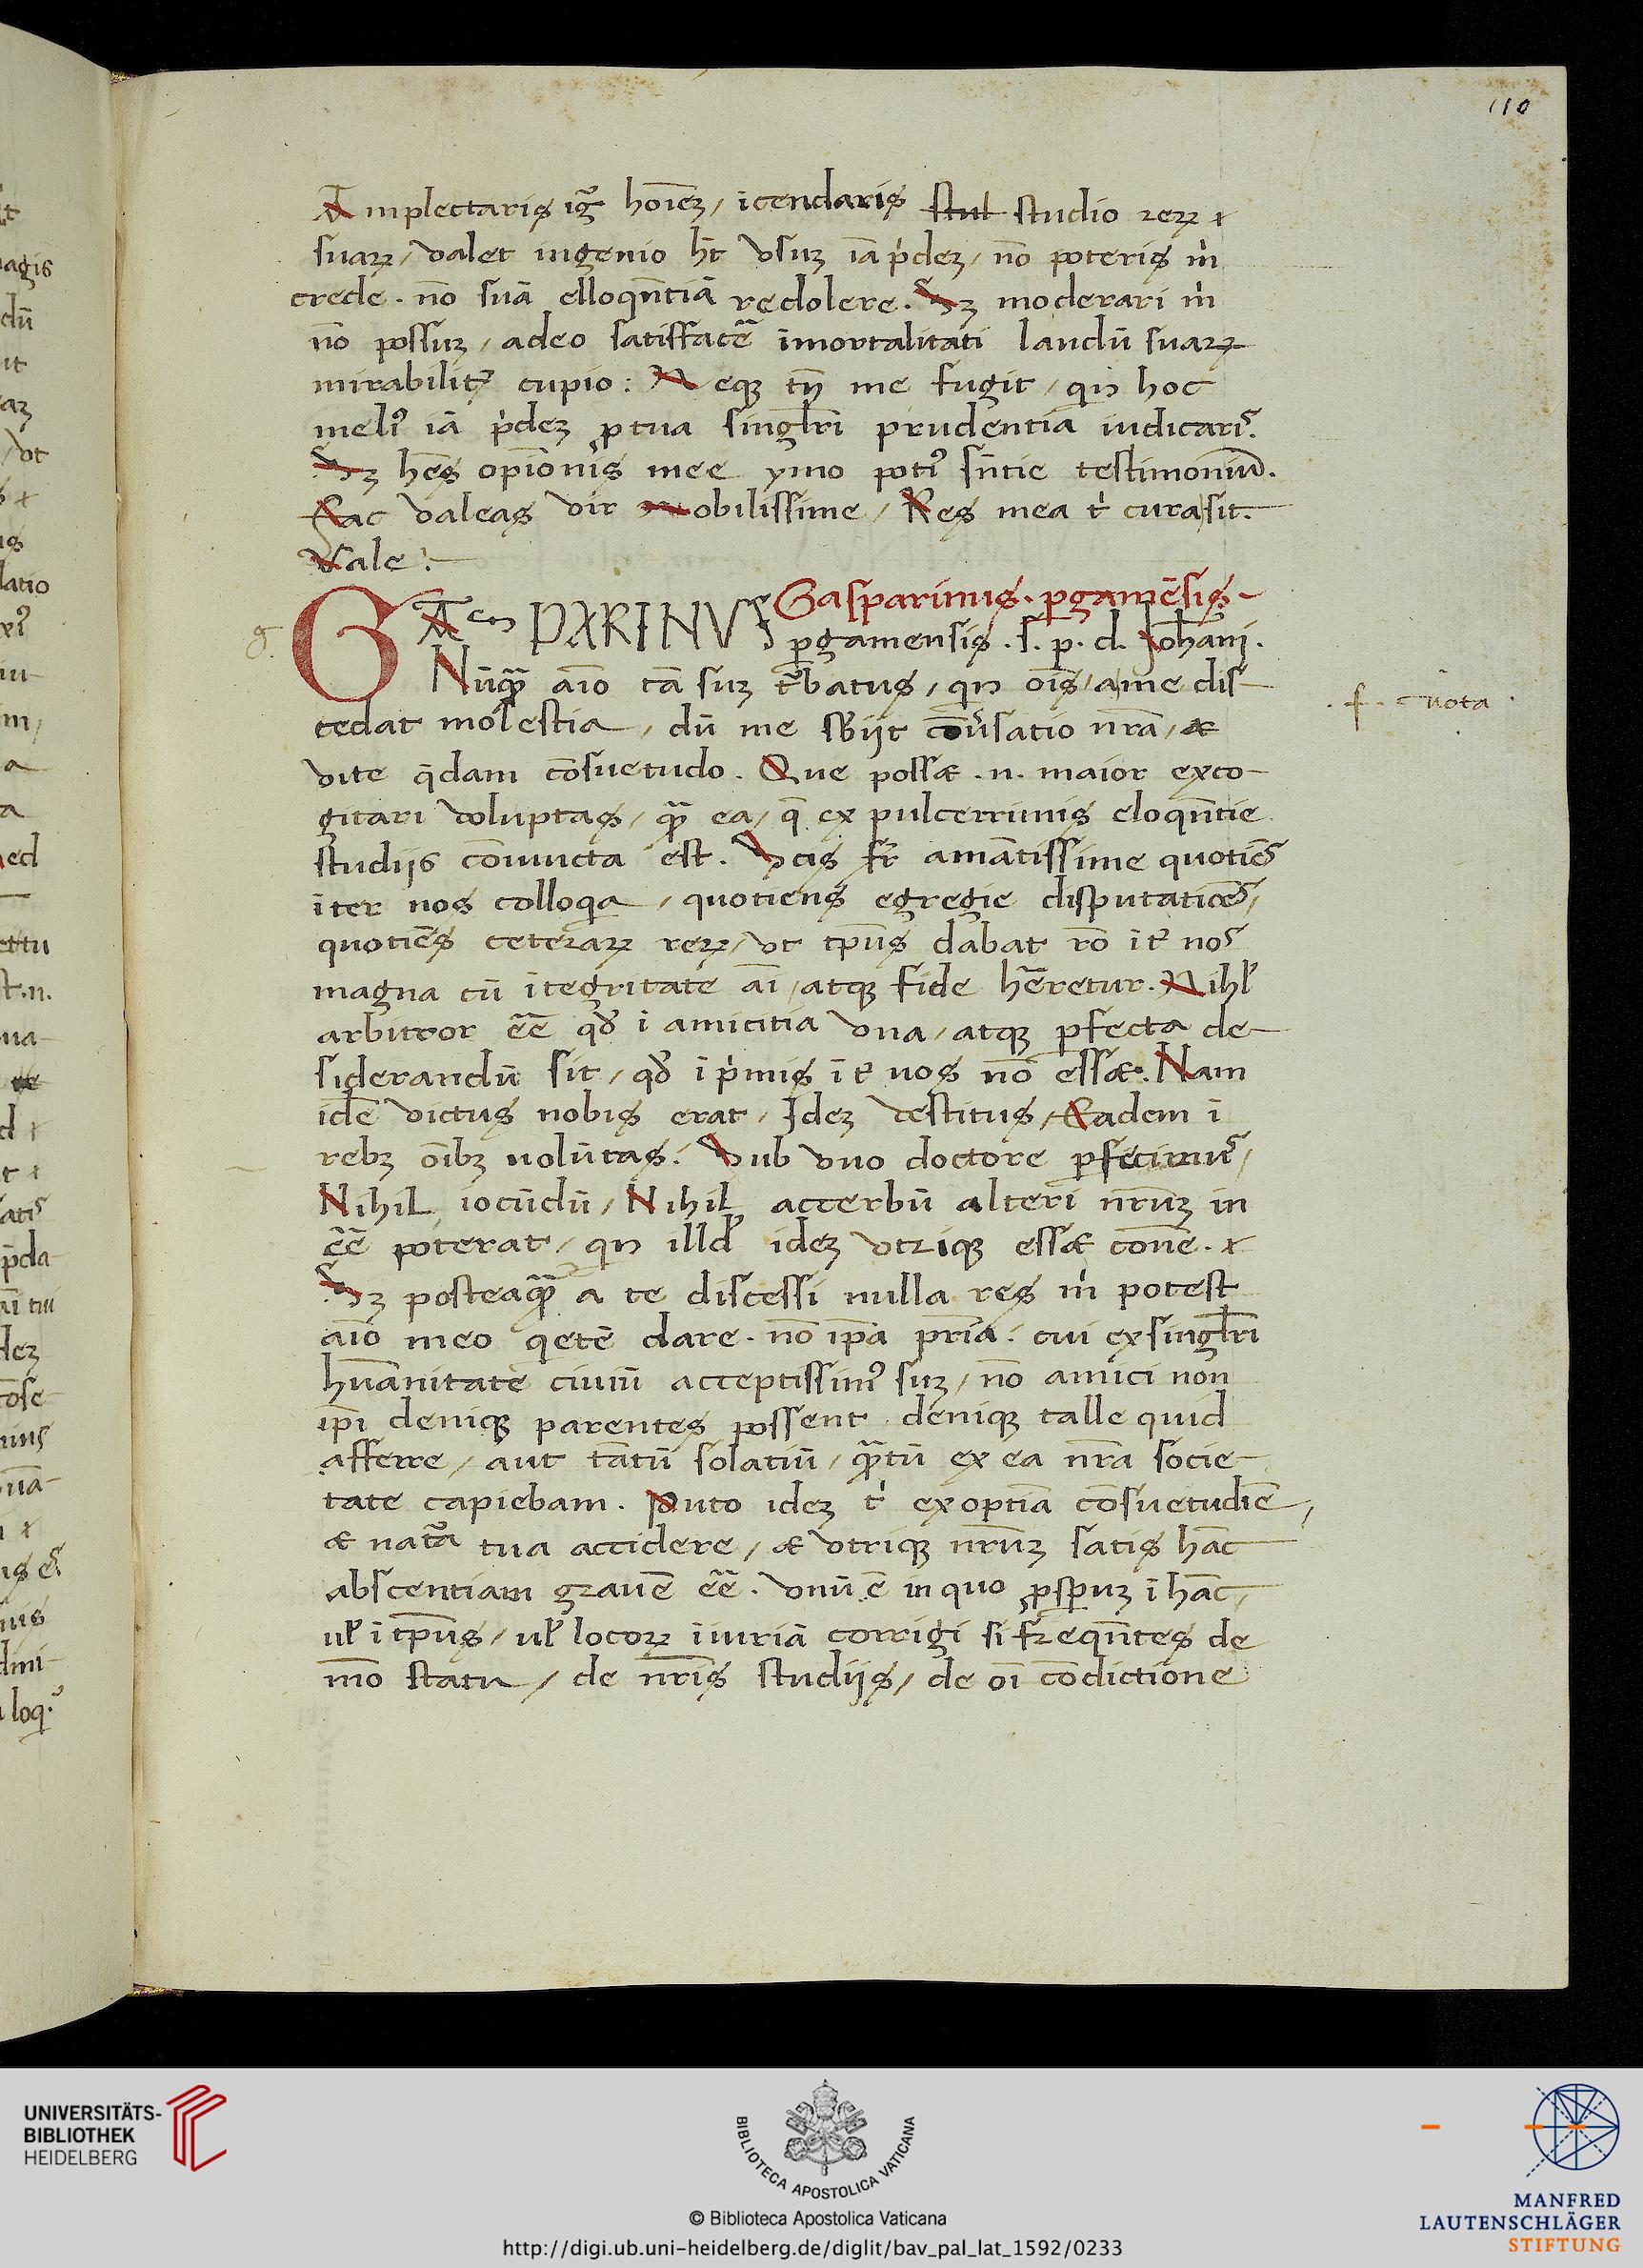 110
Amplectaris ig̃ hoīez, īcendaris stul studio rerꝝ ⁊
suarꝝ, valet ingenio h̄t vsuz iā p̍dez, nō poteris m̍
crede. nō suā elloqn̄tiā redolere. Sz moderari m̍
nō possuz, adeo satisfacē īmortalitati laudū suarꝝ
mirabilit͛ cupio: Neqꝫ tn̄ me fugit, qin hoc
meliꝰ iā p̍dez ꝓ tua singl̄ri prudentia iudicaris.
Sz hēs opīonis mee ymo potiꝰ sn̄tie testimoniuꝫ.
Fac valeas vir nobilissime, Res mea t̍ cura sit.
Vale:
Gasparinus. ꝑgamēsis
GAsPARINVS ꝑgamensis. s. p. d. Joh̄ani.
g.
Nūqꝫ̃ aīo tā suz t̃batus, qin oīs a me dis-
.f. nota
cedat molestia, dū me sb̍iit cōv̍satio nr̄a, et
vite q̄dam cōsuetudo. Que posset .n. maior exco-
gitari voluptas, qꝫ̃ ea, q̄ ex pulcerrimis eloqn̄tie
studiis cōiuncta est. Scis fr̄ amātissime quotiēs
īter nos colloqia, quotiens egregie disputatiōes,
quotiēs ceterarꝝ rerꝝ, vt tp̄us dabat rō īt͛ nos
magna cū ītegritate aī, atqꝫ fide hēretur. Nihl̍
arbitror eē̃ qd̍ ī amicitia vna, atqꝫ ꝑfecta de-
siderandū sit, qd̍ ī p̍mis īt͛ nos nō esset. Nam
idē victus nobis erat, Idez vestitus, Eadem ī
rebꝫ oībꝫ volūtas. Sub vno doctore ꝑfecimus,
Nihil iocūdū, Nihil accerbū alteri nr̄uz in
eē̃ poterat, qin illd̍ idez vtriqꝫ esset cōne. ⁊
Sz posteaqꝫ̃ a te discessi nulla res m̍ potest
aīo meo qietē dare. nō ip̄a pr̄ia. cui ex singl̄ri
hūanitate ciuiū acceptissimꝰ suz, nō amici non
ip̄i deniqꝫ parentes possent deniqꝫ talle quid
afferre, aut tātū solatiū, qꝫ̃tū ex ea nr̄a socie-
tate capiebam. Puto idez t̍ ex optīa cōsuetudīe,
et nat̃a tua accidere, et vtriqꝫ nr̄uz satis hāc
abscentiam grauē eē̃. vnū ē in quo ꝓsꝑuz ī hāc,
ul̍ ī tp̄us, ul̍ locorꝝ īiuriā corrigi si freqn̄tes de
mō statu, de nr̄is studiis, de oī cōdictione
UNIVERSITÄTS-
BIBLIOTHEK
HEIDELBERG
BIBLIOTECA APOSTOLICA VATICANA
© Biblioteca Apostolica Vaticana
http://digi.ub.uni-heidelberg.de/diglit/bav_pal_lat_1592/0233
MANFRED
LAUTENSCHLÄGER
STIFTUNG